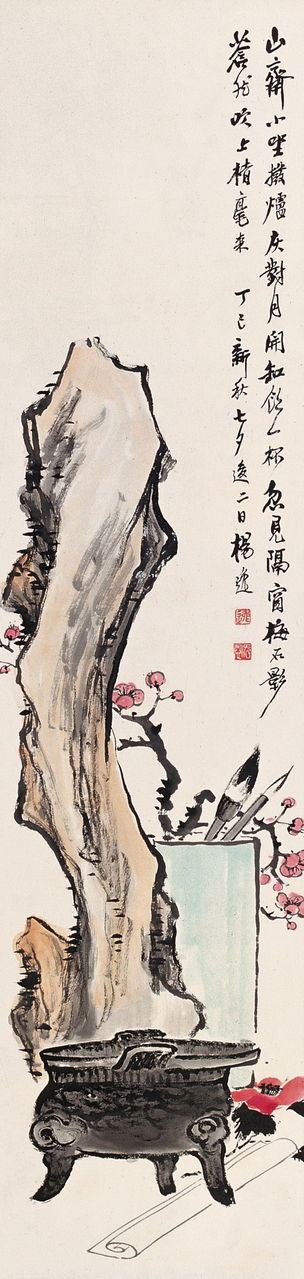 山齋小坐撥爐灰對月開缸飲一杯忽見隔窗梅石影
蒼然吹上楮毫来　丁巳新秋七夕後二日楊逸